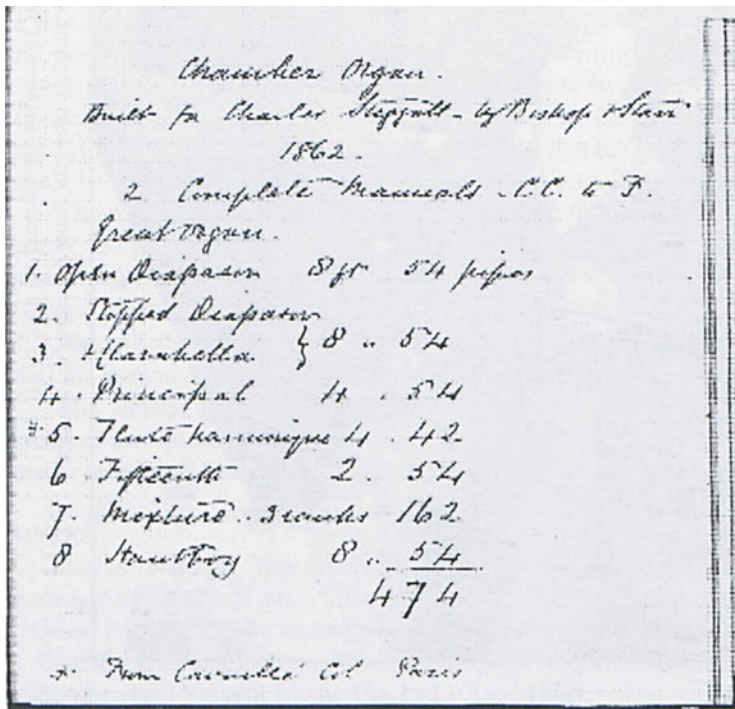 Chamber Organ.
Built for Charles Steggall - by Bishop & Starr
1862.
2 Complete Manuals - C.C. to F.
Great Organ.
1. Open Diapason 8 ft 54 pipes
2. Stopped Diapason
3. & Claribella } 8 .. 54
4. Principal 4 . 54
* 5. Flute harmonique 4 . 42
6 Fifteenth 2. 54
7. Mixture . 3 ranks 162
8 Hautboy 8 .. 54
474
* From Cavaillé Col Paris